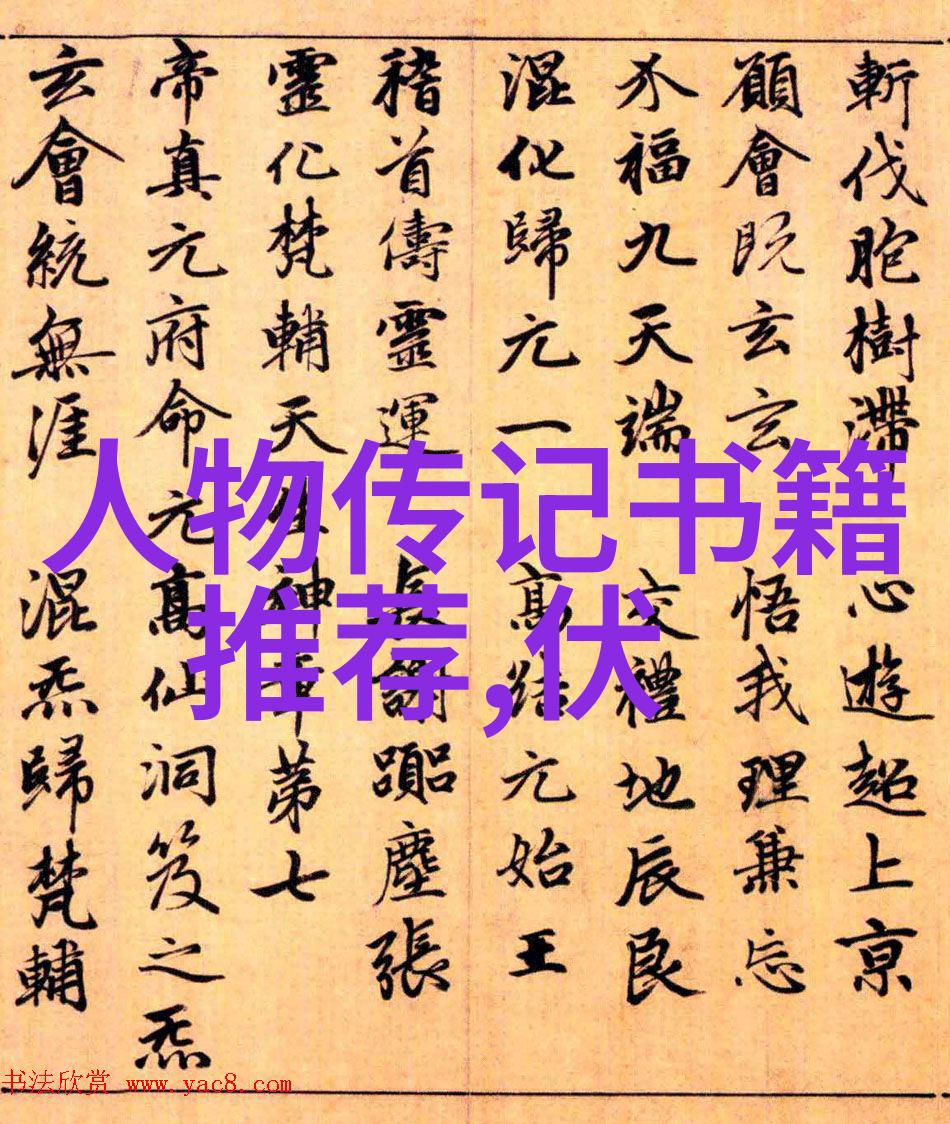 斬伐胞樹滯 心遊超上京
願會既玄玄 悟我理兼忘
介福九天端 交禮地辰良
混化歸元一 高結元始王
稽首儔靈運 長謝 塵張
靈化梵輔天生神章第七
帝真元府命元高仙洞笈之炁
玄會統無涯 混炁歸梵輔
人物传记书籍
推荐,伏
书法欣赏 www.yac8.com